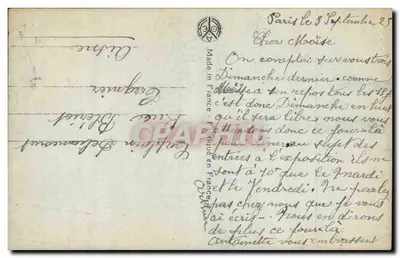 Paris le 3 Septembre 25
Cher Moïse
On comptait sur vous trois
Dimanche dernier comme
Moïse a son repos tous les
c'est donc Dimanche en huit
qu'il sera libre nous vous
attendons donc ce jour là
pour au sujet des
entrées à l'exposition ils ne
sont à que le Mardi
et le Vendredi. Ne parlez
pas chez nous que je vous
ai écris - Nous en dirons
de plus ce jour-là
Antoinette vous embrassent
Made in France
Fabriqué en France
Rue Blériot
Aisne
CPARAMA